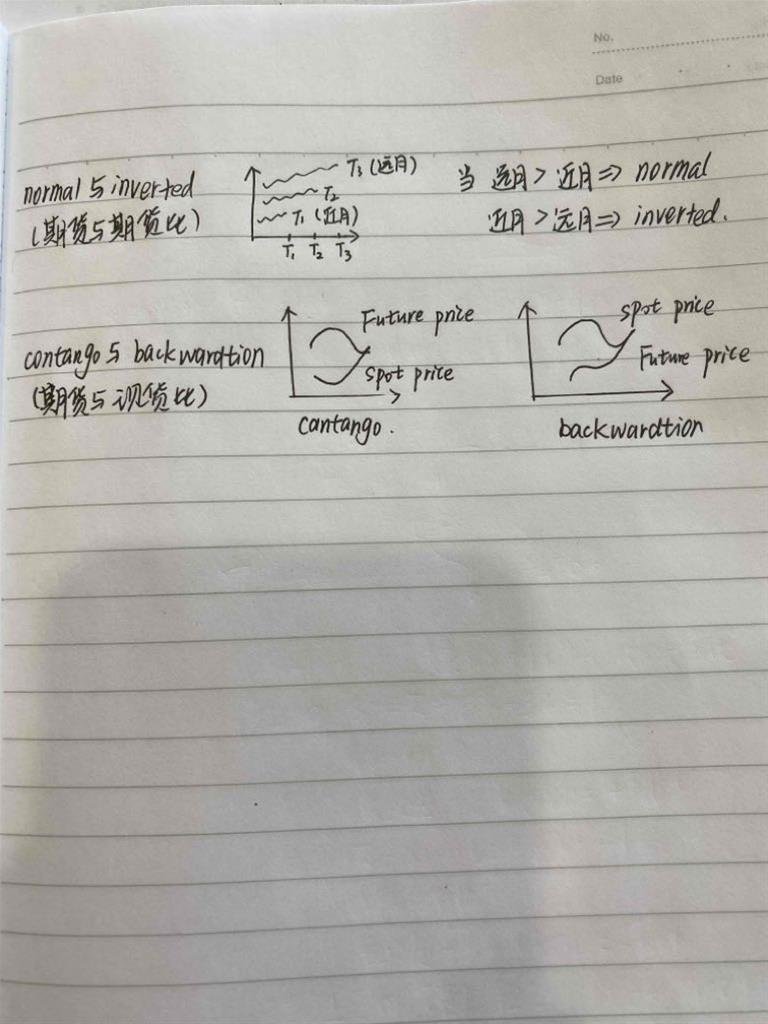 No.
Date
normal与inverted
(期货与期货比)
T3 (远月)
T2
T1 (近月)
T1 T2 T3
当 远月 > 近月 => normal
近月 > 远月 => inverted.
contango与 backwardtion
(期货与现货比)
Future price
spot price
cantango.
spot price
Future price
backwardtion